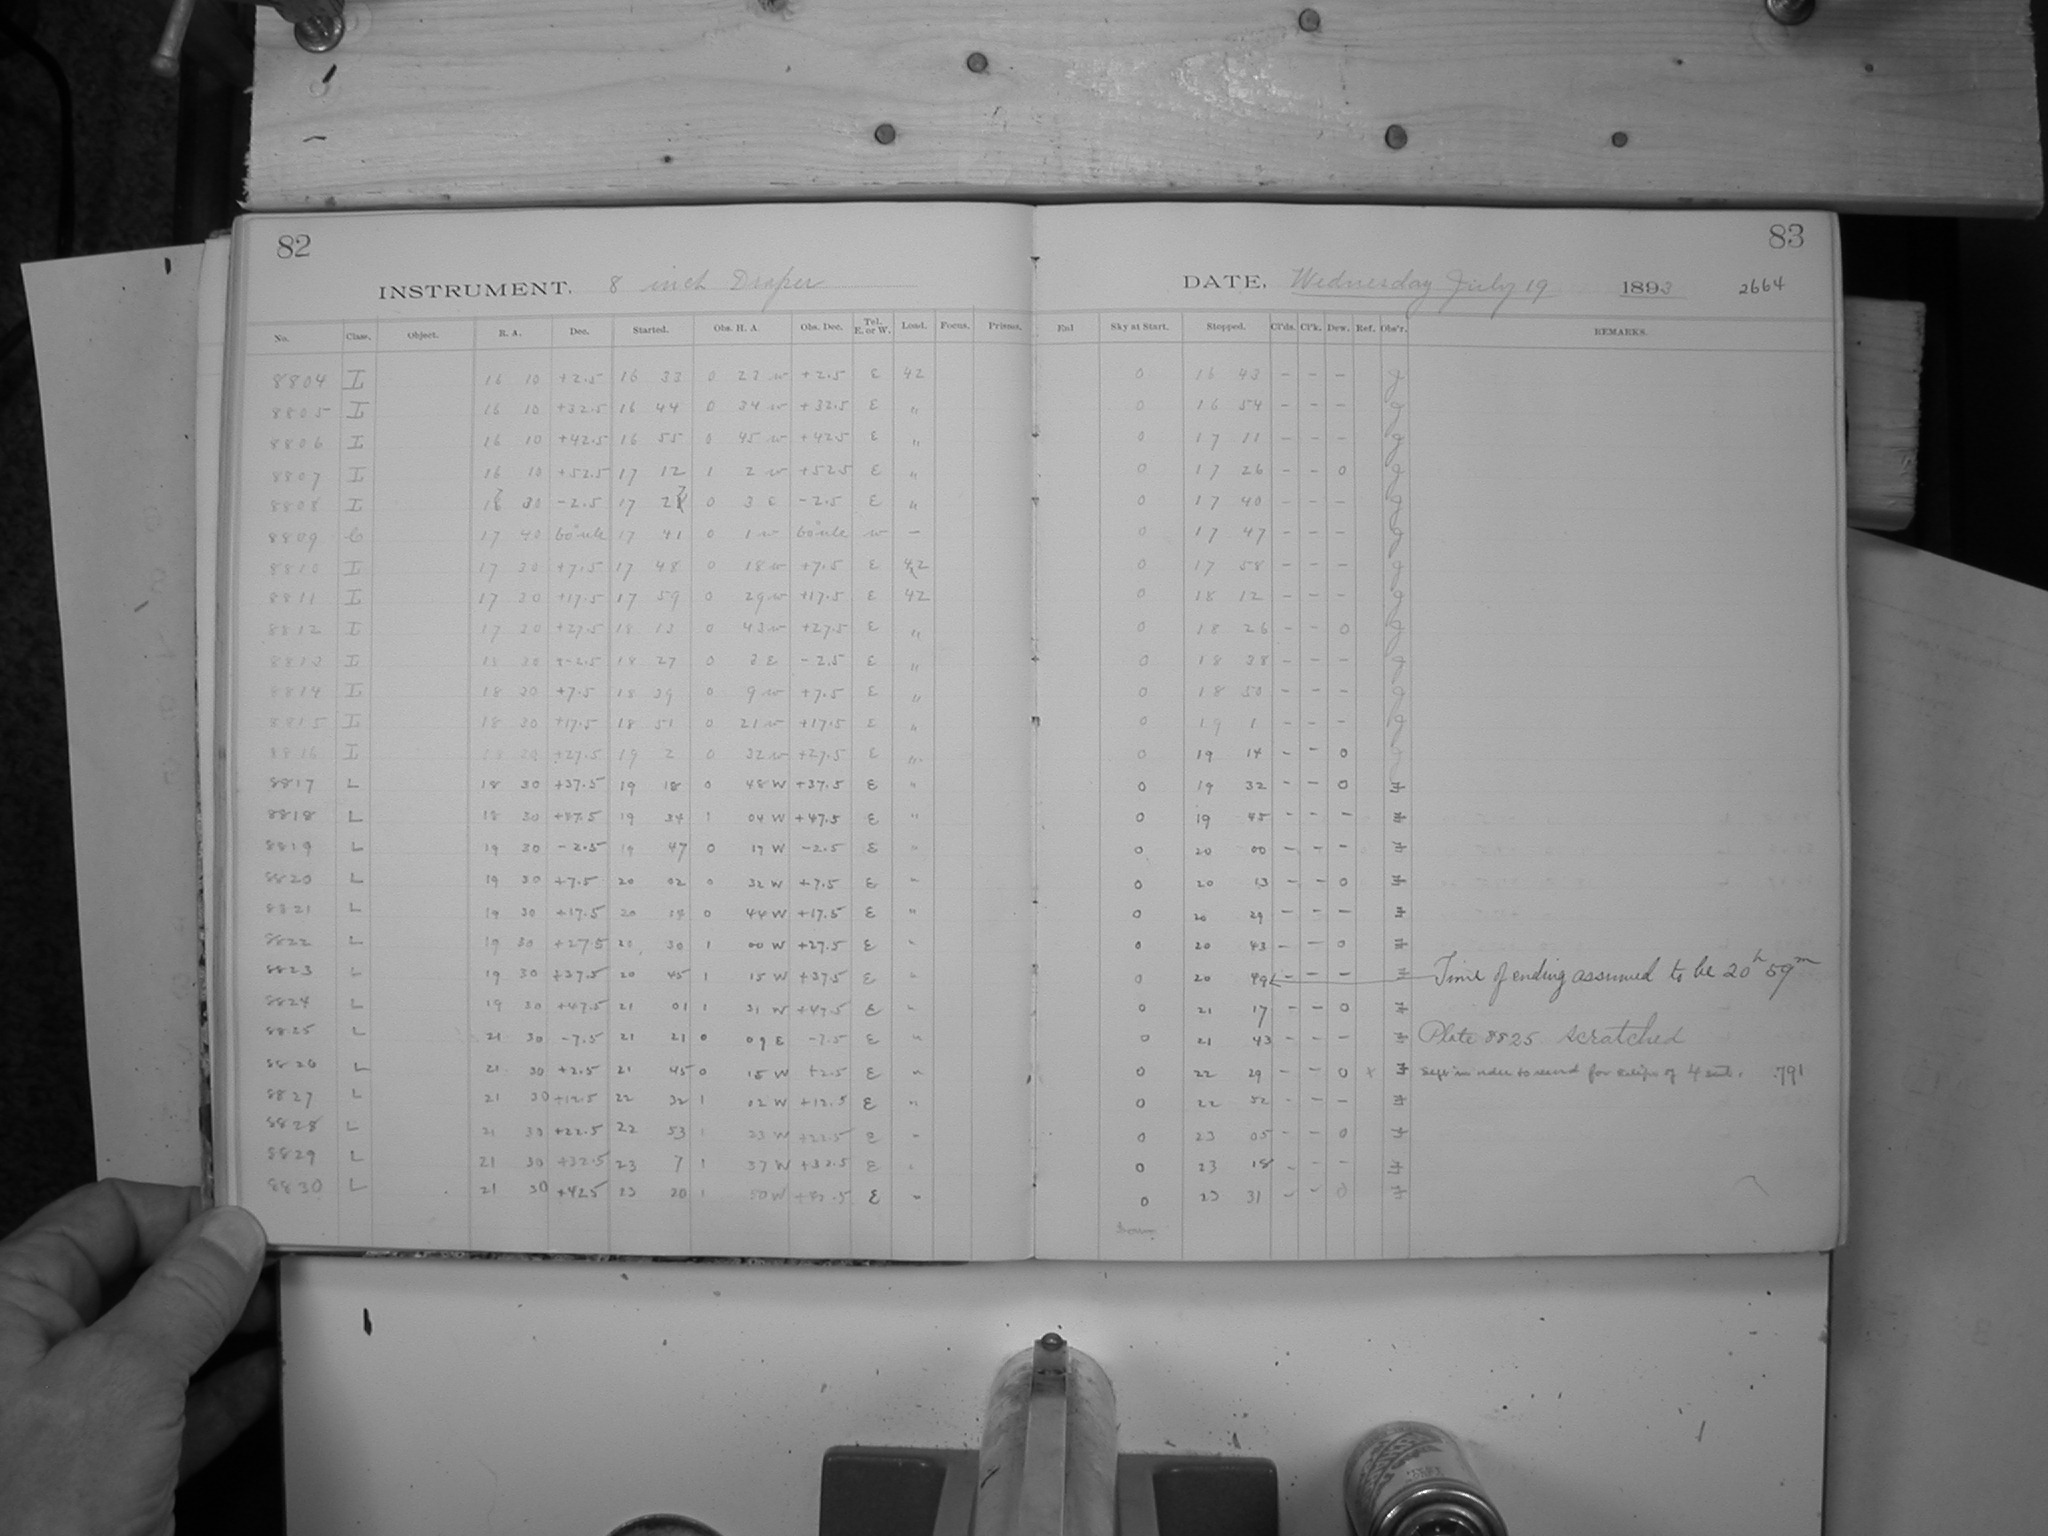 82
INSTRUMENT. 8 inch Draper
No. Class. Object. R. A. Dec. Started. Obs. H. A. Obs. Dec. Tel. E. or W. Load. Focus. Prisms.
8804 I 16 10 +2.5 16 33 0 23 w +2.5 E 42
8805 I 16 10 +32.5 16 44 0 34 w +32.5 E "
8806 I 16 10 +42.5 16 55 0 45 w +425 E "
8807 I 16 10 +52.5 17 12 1 2 w +525 E "
8808 I 30 -2.5 17 0 3 E -2.5 E "
8809 C 17 40 17 41 0 1 w w —
8810 I 17 30 +7.5 17 48 0 18 w +7.5 E 42
8811 I 17 30 +17.5 17 59 0 29 w +17.5 E 42
8812 I 17 30 +27.5 18 13 0 43 w +27.5 E "
8813 I 18 30 -2.5 18 27 0 3 E -2.5 E "
8814 I 18 30 +7.5 18 39 0 9 w +7.5 E "
8815 I 18 30 +17.5 18 51 0 21 w +17.5 E "
8816 I 18 30 +27.5 19 2 0 32 w +27.5 E "
8817 L 18 30 +37.5 19 18 0 48 W +37.5 E "
8818 L 18 30 19 34 1 04 W +47.5 E "
8819 L 19 30 -2.5 19 47 0 17 W -2.5 E "
8820 L 19 30 +7.5 20 02 0 32 W +7.5 E "
8821 L 19 30 +17.5 20 14 0 44 W +17.5 E "
8822 L 19 30 +27.5 20 30 1 00 W +27.5 E "
8823 L 19 30 +37.5 20 45 1 15 W +37.5 E "
8824 L 19 30 +47.5 21 01 1 31 W +47.5 E "
8825 L 21 30 -7.5 21 21 0 09 E -7.5 E "
8826 L 21 30 +2.5 21 45 0 15 W +2.5 E "
8827 L 21 30 +12.5 22 32 1 02 W +12.5 E "
8828 L 21 30 +22.5 22 53 1 23 W +22.5 E "
8829 L 21 30 +32.5 23 7 1 37 W +32.5 E "
8830 L 21 30 +425 23 20 1 50 W +42.5 E "
83
DATE, Wednesday July 19 1893 2664
Enl Sky at Start. Stopped. Cl'ds. Cl'k. Dew. Ref. Obs'r. REMARKS.
0 16 43 - - - J
0 16 54 - - - J
0 17 11 - - - J
0 17 26 - - 0 J
0 17 40 - - - J
0 17 47 - - - J
0 17 58 - - - J
0 18 12 - - - J
0 18 26 - - 0 J
0 18 38 - - - J
0 18 50 - - - J
0 19 1 - - - J
0 19 14 - - 0 J
0 19 32 - - 0
0 19 45 - - -
0 20 00 - - -
0 20 13 - - 0
0 20 29 - - -
0 20 43 - - 0
0 20 49 - - - Time of ending assumed to be 20h 59m
0 21 17 - - 0
0 21 43 - - - Plate 8825 scratched
0 22 29 - - 0 x in order to record for eclipse of 791
0 22 52 - - -
0 23 05 - - 0
0 23 18 - - -
0 23 31 - - 0